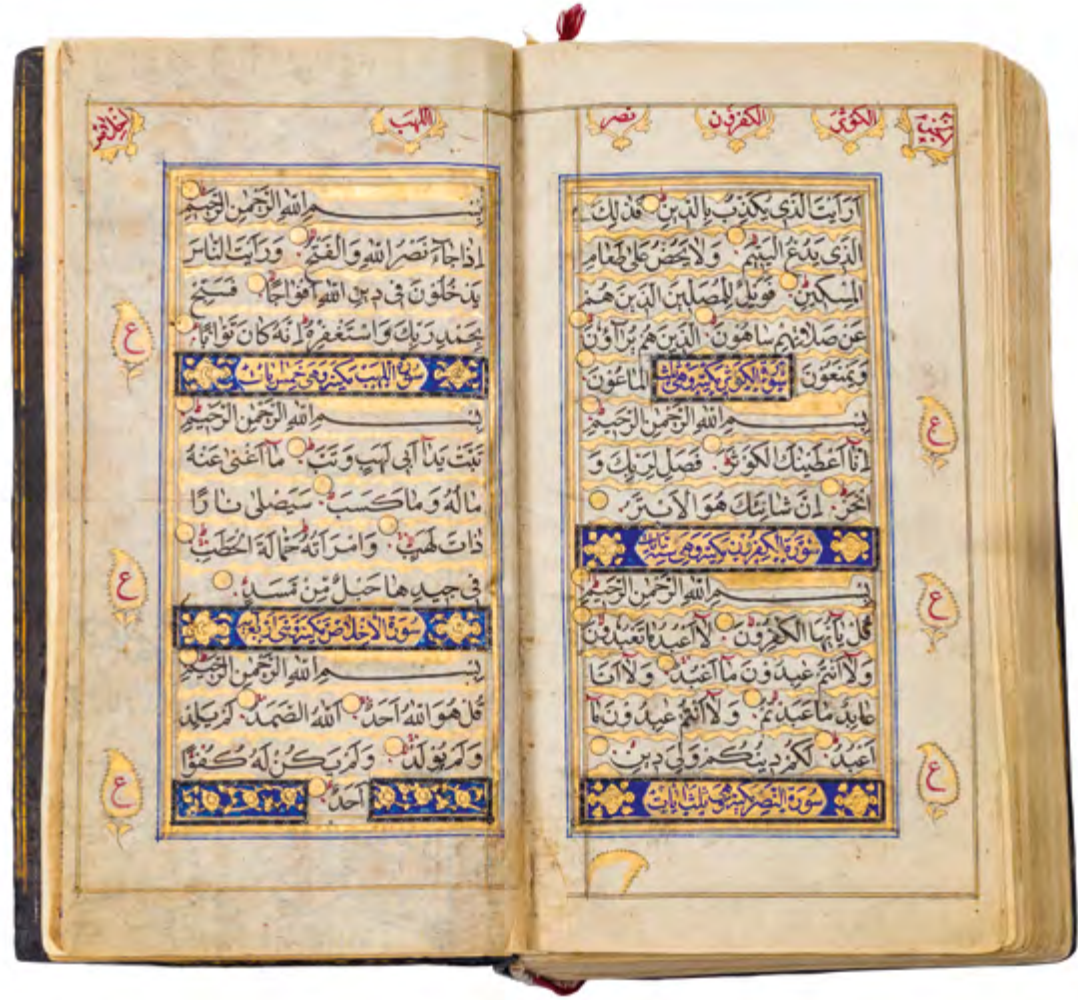 الكوثر
الكفرون
نصر
أرأيت الذي يكذب بالدين فذلك
الذي يدع اليتيم ولا يحض على طعام
المسكين فويل للمصلين الذين هم
عن صلاتهم ساهون الذين هم يراؤن
ويمنعون الماعون
سورة الكوثر مكية وهي
بسم الله الرحمن الرحيم
إنا أعطينك الكوثر فصل لربك و
انحر إن شانئك هو الأبتر
سورة الكفرون مكية وهي ست
بسم الله الرحمن الرحيم
قل يأيها الكفرون لا أعبد ما تعبدون
ولا أنتم عبدون ما أعبد ولا أنا
عابد ما عبدتم ولا أنتم عبدون ما
أعبد لكم دينكم ولي دين
سورة النصر مكية وهي ثلث ايات
ع
ع
ع
اللهب
بسم الله الرحمن الرحيم
إذا جاء نصر الله والفتح ورأيت الناس
يدخلون في دين الله أفواجا فسبح
بحمد ربك واستغفره إنه كان توابا
سورة اللهب مكية وهي خمس ايات
بسم الله الرحمن الرحيم
تبت يدا أبي لهب وتب ما أغنى عنه
ماله وما كسب سيصلى نارا
ذات لهب وامرأته حمالة الحطب
في جيدها حبل من مسد
سورة الاخلاص مكية
بسم الله الرحمن الرحيم
قل هو الله أحد الله الصمد لم يلد
ولم يولد ولم يكن له كفوا
أحد
ع
ع
ع